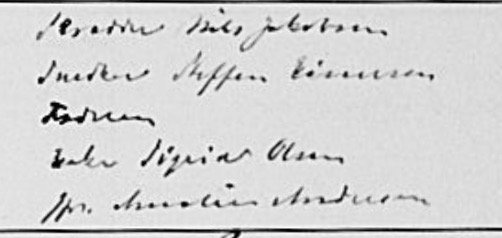 Skredder Nils Jakobsen
Snedker Steffen Einersen
Enke Sigrid Olsen
Jfr. Amalie Andersen